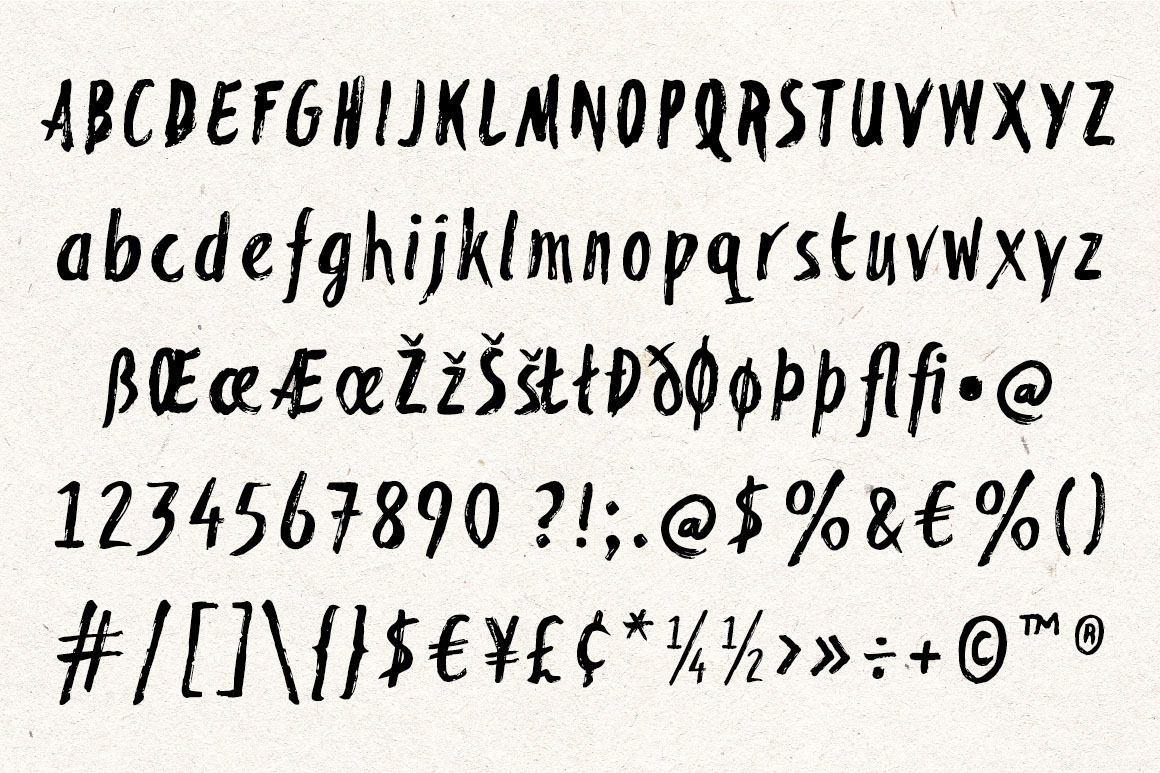 ABCDEFGHIJKLMNOPQRSTUVWXYZ
abcdefghijklmnopqrstuvwxyz
ßŒœÆœŽžŠšŧłÐðØøÞþflfi•@
1234567890 ?!;.@$%&€%()
#/[]\{}$€¥£¢*¼½›»÷+©™®